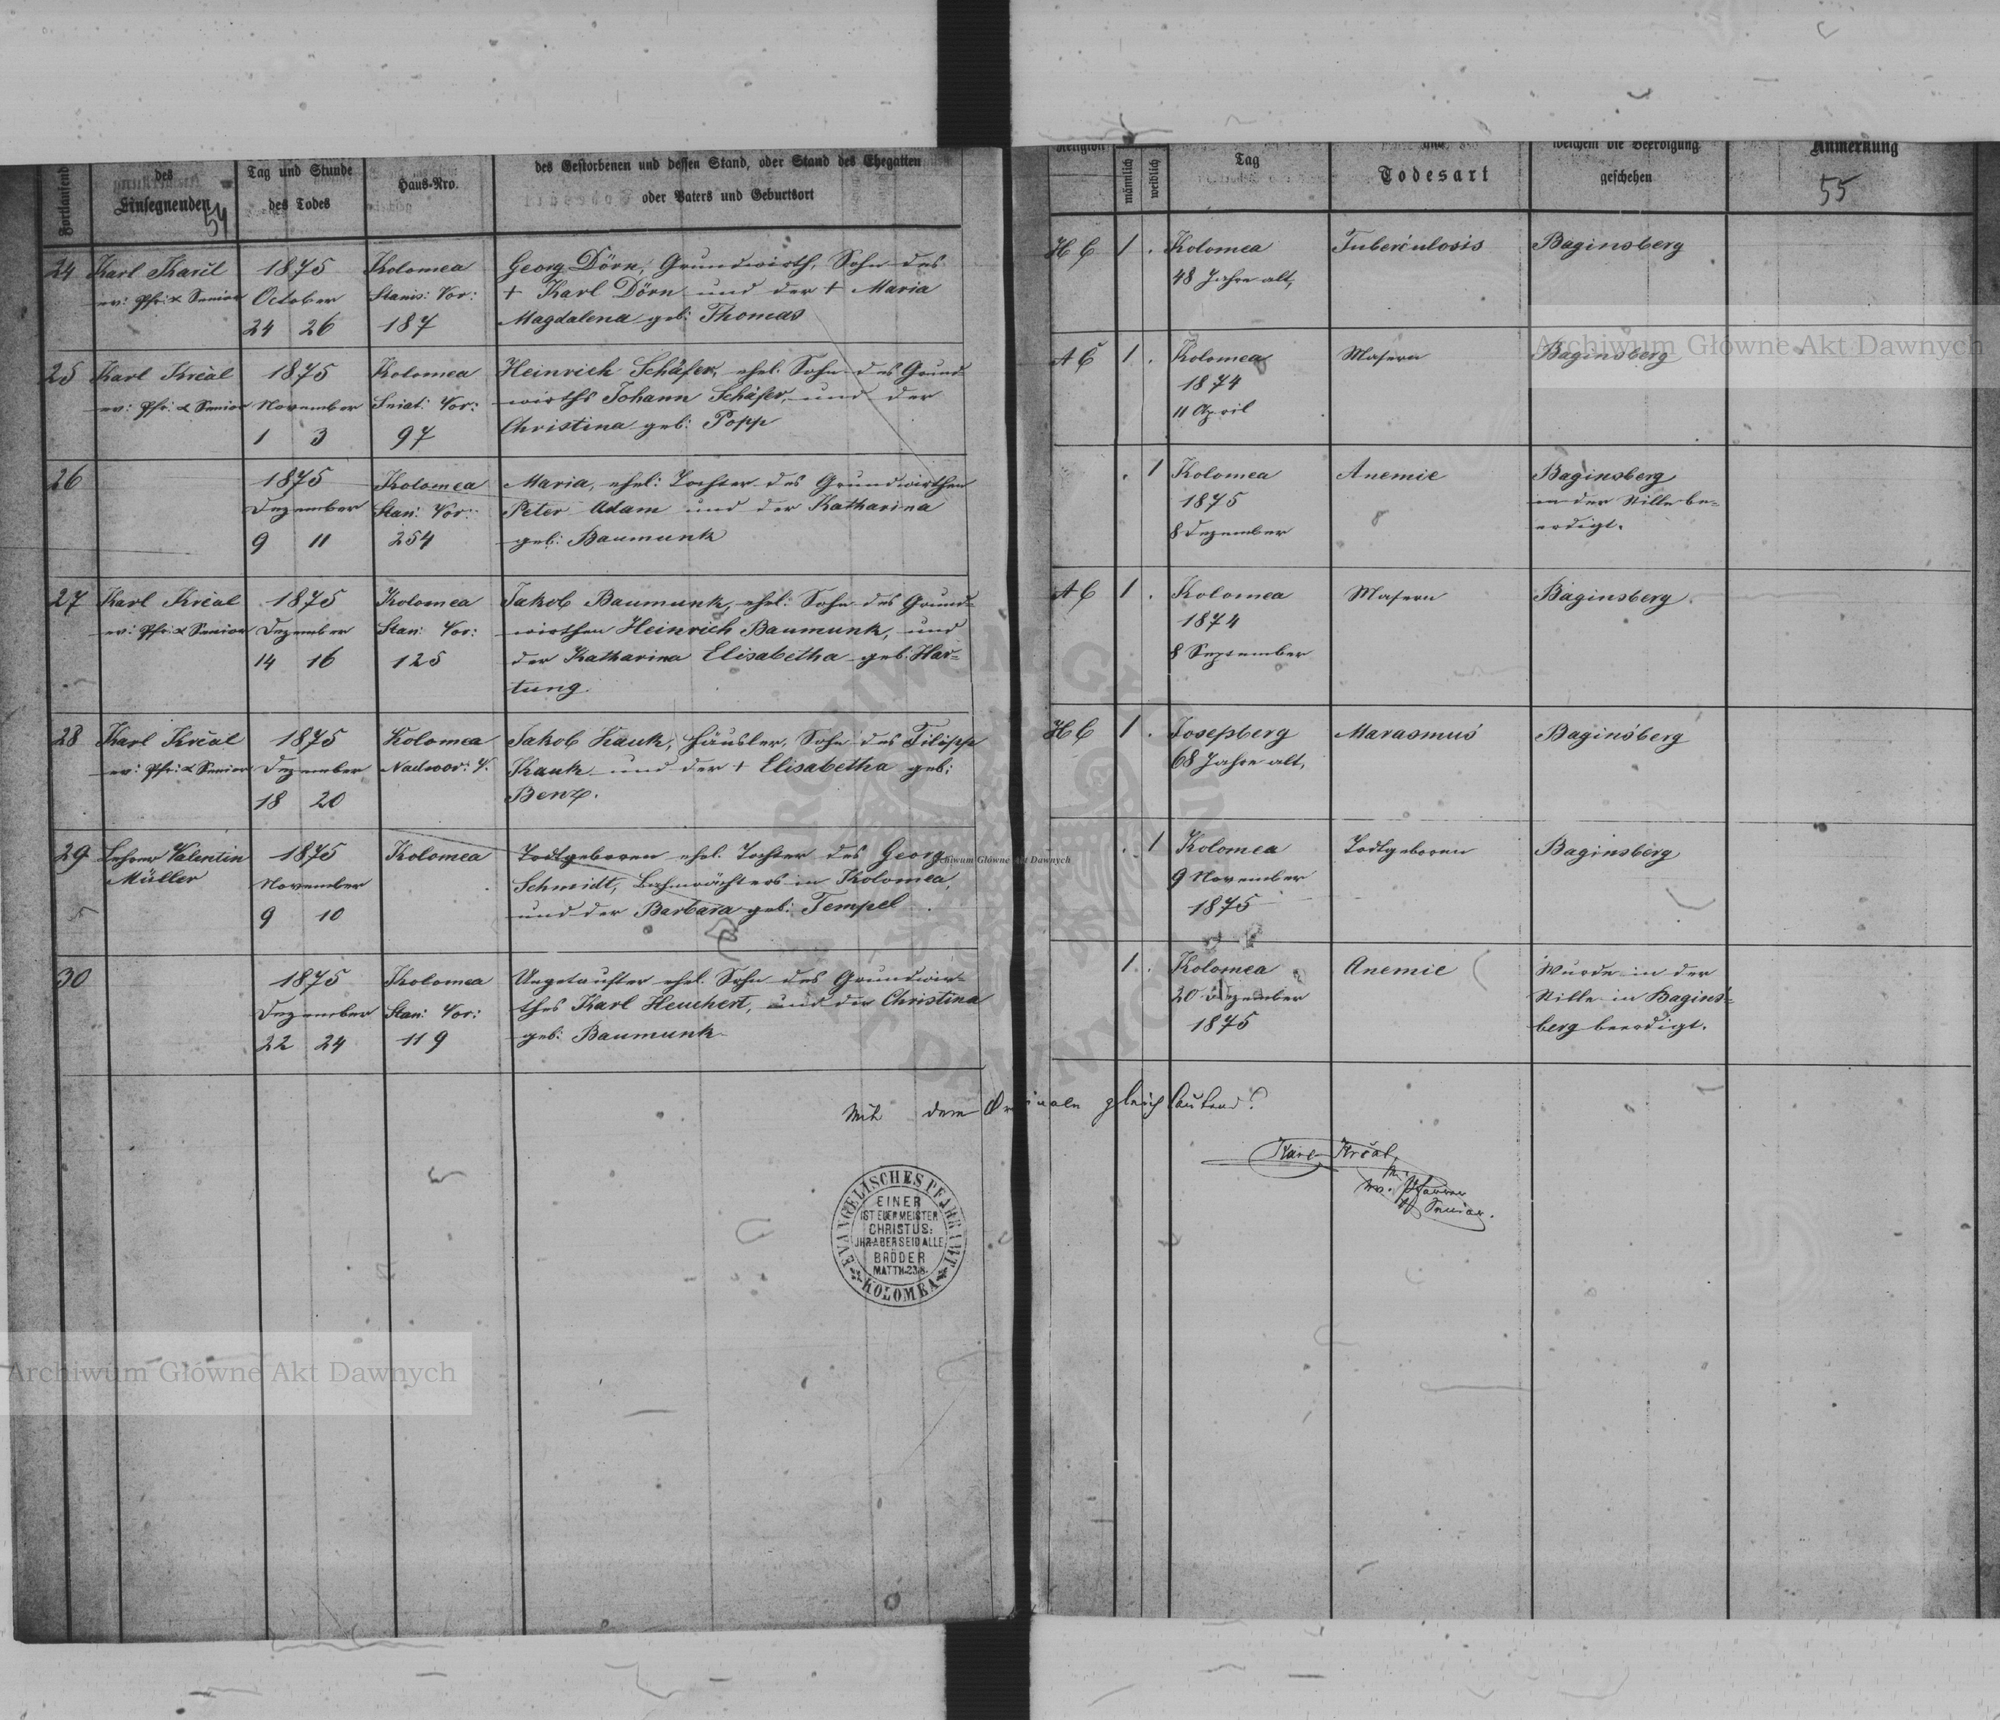 Fortlaufend
des
Einsegnenden
54
Tag und Stunde
des Todes
Haus-Nro.
des Gestorbenen und dessen Stand, oder Stand des Ehegatten
oder Vaters und Geburtsort
Religion
männlich
weiblich
Tag
und
Todesart
welchem die Beerdigung
geschehen
Anmerkung
55
24 Karl Karil 1875 Kolomea Georg Dörn, Grundwirth, Sohn des H C 1 . Kolomea Tuberculosis Baginsberg
ev: Pfr: & Senior October Stanis: Vor: + Karl Dörn und der + Maria 48 Jahre alt,
24 26 187 Magdalena geb: Thomas
25 Karl Krčal 1875 Kolomea Heinrich Schäfer, ehel. Sohn des Grund A C 1 . Kolomea Masern Baginsberg
ev: Pfr: & Senior November Sniat: Vor: wirths Johann Schäfer, und der 1874
1 3 97 Christina geb: Popp 11 April
26 1875 Kolomea Maria, ehel: Tochter des Grundwirthen . 1 Kolomea Anemie Baginsberg
Dezember Stan: Vor: Peter Adam und der Katharina 1875 in der Stille be=
9 11 254 geb: Baumunk 8 Dezember erdigt.
27 Karl Krčal 1875 Kolomea Jakob Baumunk, ehel: Sohn des Grund= A C 1 . Kolomea Masern Baginsberg
ev: Pfr: & Senior Dezember Stan: Vor: wirthen Heinrich Baumunk, und 1874
14 16 125 der Katharina Elisabetha geb. Har= 8 September
tung.
28 Karl Krčal 1875 Kolomea Jakob Kauk, Häusler, Sohn des Filipp H C 1 . Josepberg Marasmus Baginsberg
ev: Pfr: & Senior Dezember Nadwor: V. Kauk und der + Elisabetha geb: 68 Jahre alt,
18 20 Benz.
29 Lehrer Valentin 1875 Kolomea Todtgeboren ehel. Tochter des Georg . 1 Kolomea Todtgeboren Baginsberg
Müller November Schmidt, Bahnwächters in Kolomea, 9 November
9 10 und der Barbara geb: Tempel 1875
30 1875 Kolomea Ungetaufter ehel. Sohn des Grundwir= 1 . Kolomea Anemie Wurde in der
Dezember Stan: Vor: thes Karl Heuchert, und der Christina 20 Dezember Stille in Bagins=
22 24 119 geb: Baumunk 1875 berg beerdigt.
Mit dem Originale gleichlautend!
Karl Krčal,
ev. Pfarrer
& Senior.
EVANGELISCHES PFARRAMT
EINER
IST EUER MEISTER
CHRISTUS:
JHR ABER SEID ALLE
BRÜDER
MATTH.23.8.
KOLOMEA
Archiwum Główne Akt Dawnych
Archiwum Główne Akt Dawnych
Archiwum Główne Akt Dawnych
ARCHIWUM GŁÓWNE AKT DAWNYCH